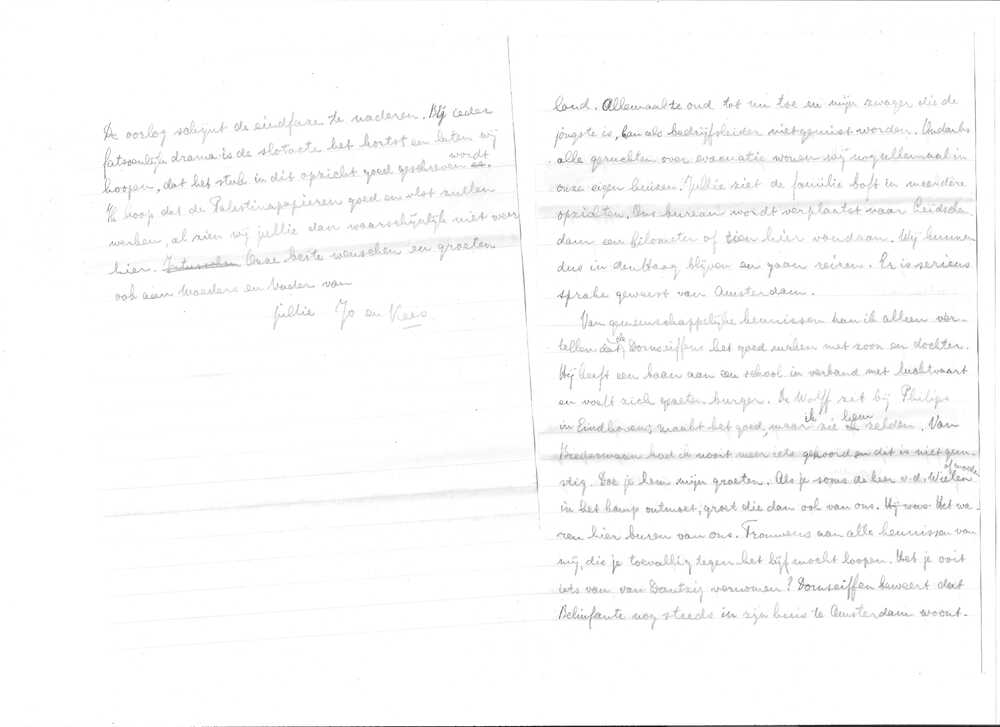 De oorlog schijnt de eindfaze te naderen. Bij ieder
fatsoenlijk drama is de slotacte het kortst en laten wij
hoopen, dat het stuk in dit opzicht goed geschreven wordt.
Ik hoop dat de Palestinapapieren goed en vlot zullen
werken, al zien wij jullie dan waarschijnlijk niet weer
hier. Intusschen Onze beste wenschen en groeten
ook aan Moeders en Vader van
jullie Jo en Kees
land. Allemaal te oud tot nu toe en mijn zwager die de
jongste is, kan als bedrijfsleider niet gemist worden. Ondanks
alle geruchten over evacuatie wonen wij nog allemaal in
onze eigen huizen. Jullie ziet de familie boft in meerdere
opzichten. Ons bureau wordt verplaatst naar Leidschen-
dam een kilometer of tien hier vandaan. Wij kunnen
dus in den Haag blijven en gaan reizen. Er is serieus
sprake geweest van Amsterdam.
Van gemeenschappelijke kennissen kan ik alleen ver-
tellen dat de Dornseiffens het goed maken met zoon en dochter.
Hij heeft een baan aan een school in verband met luchtvaart
en voelt zich gezeten burger. De Wolff zit bij Philips
in Eindhoven; maakt het goed, maar ik zie hem zelden. Van
had ik nooit meer iets gehoord en dit is niet gun-
stig. Doe je hem mijn groeten. Als je soms de heer v.d. Wielen of moeder
in het kamp ontmoet, groet die dan ook van ons. Hij was Het wa-
ren hier buren van ons. Trouwens aan alle kennissen van
mij, die je toevallig tegen het lijf mocht loopen. Heb je ooit
iets van van Dantzig vernomen? Dornseiffen beweert dat
Belinfante nog steeds in zijn huis te Amsterdam woont.